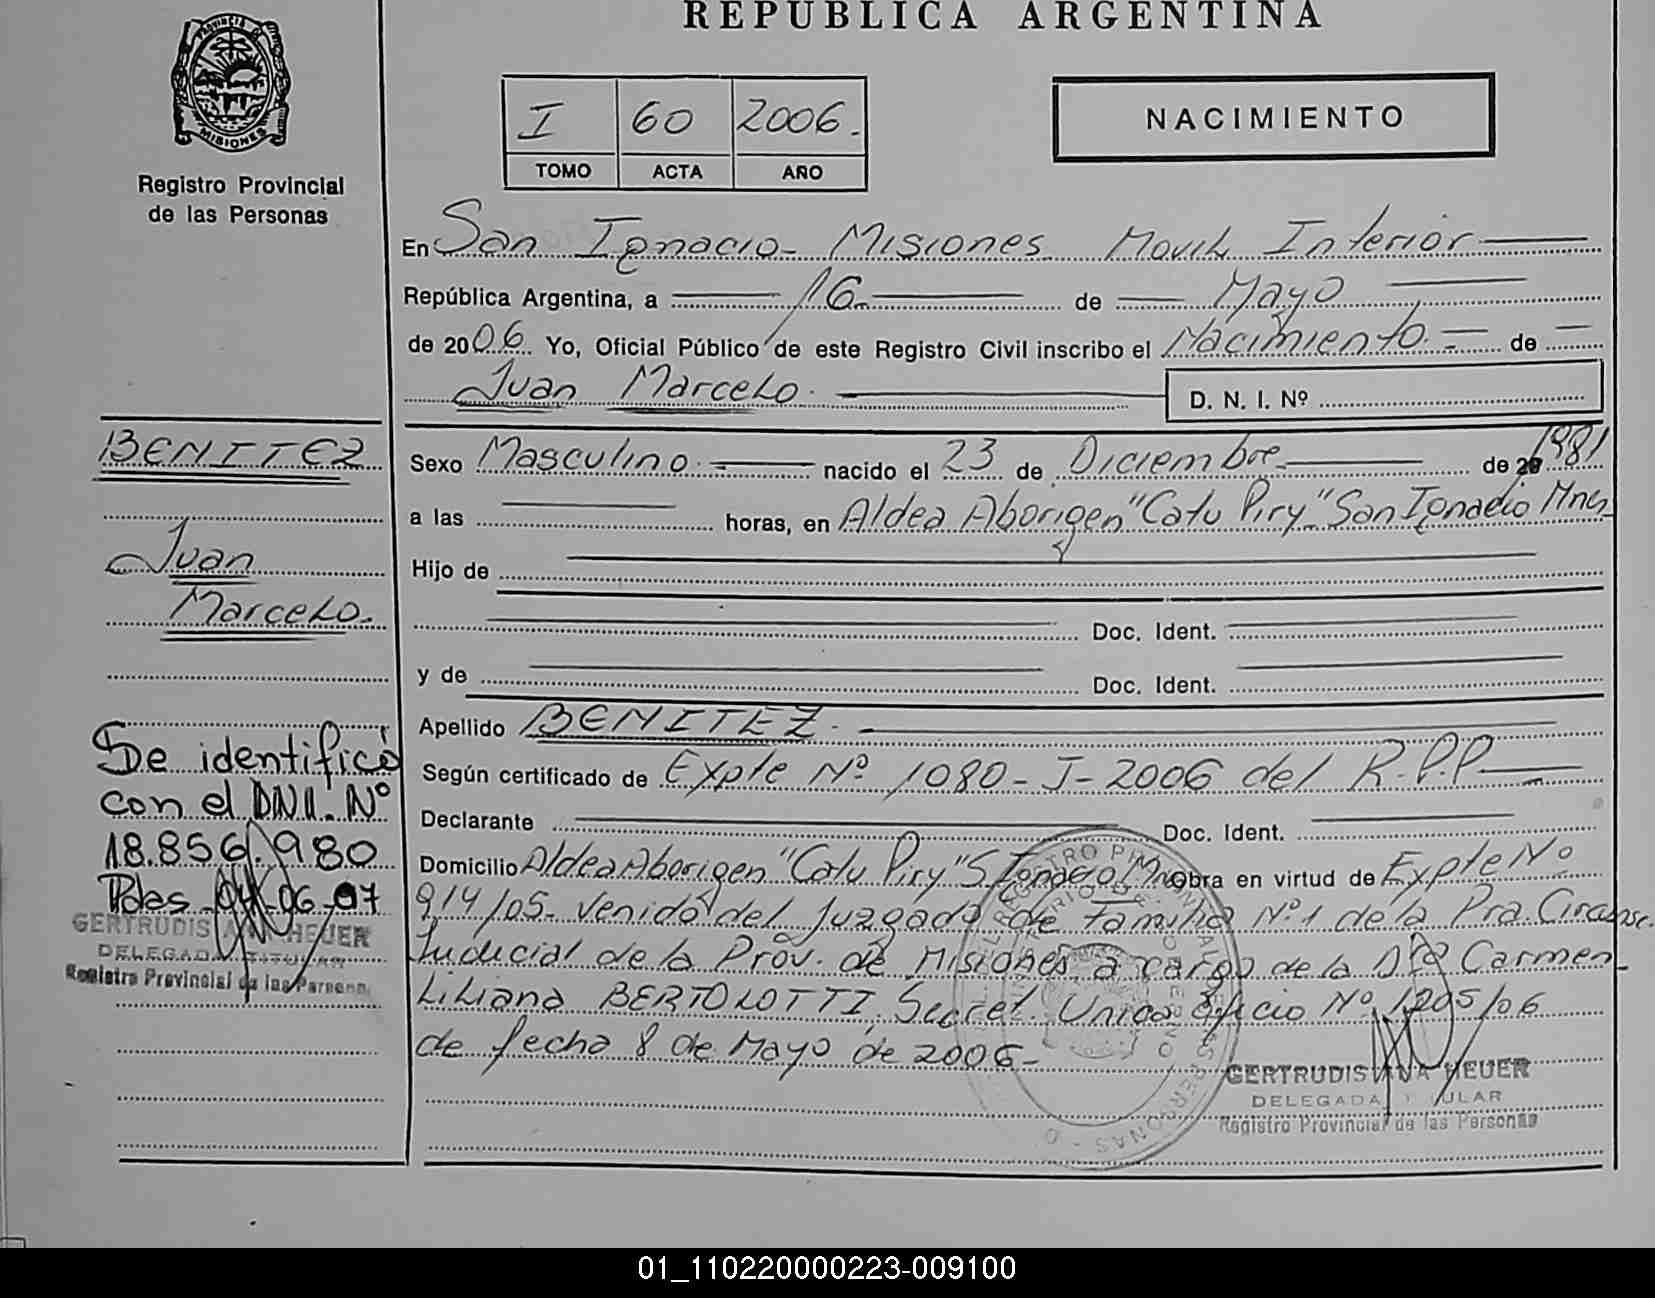 REPUBLICA ARGENTINA
PROVINCIA DE
MISIONES
Registro Provincial
de las Personas
I 60 2006.
TOMO ACTA AÑO
NACIMIENTO
En San Ignacio - Misiones Movil Interior
República Argentina, a 16 de Mayo
de 2006 Yo, Oficial Público de este Registro Civil inscribo el Nacimiento de
Juan Marcelo.
D. N. I. Nº
BENITEZ
Juan
Marcelo.
Sexo Masculino nacido el 23 de Diciembre de 20 1981
a las horas, en Aldea Aborigen "Catu Piry" San Ignacio Mnes
Hijo de
Doc. Ident.
y de Doc. Ident.
Apellido BENITEZ.
Según certificado de Expte Nº 1080-J-2006 del R.P.P
Declarante Doc. Ident.
Domicilio Aldea Aborigen "Catu Piry" S Ignacio Mnes Obra en virtud de Expte Nº
914/05 - Venido del Juzgado de Familia Nº 1 de la Pra Circunsc.
Judicial de la Prov. de Misiones, a cargo de la Dra Carmen
Liliana BERTOLOTTI, Secret. Unica Oficio Nº 1205/06
de fecha 8 de Mayo de 2006-
Se identificó
con el DNI. Nº
18.856.980
Pdas 04-06-07
GERTRUDIS ANA HEUER
DELEGADA TITULAR
Registro Provincial de las Personas
GERTRUDIS ANA HEUER
DELEGADA TITULAR
Registro Provincial de las Personas
01_110220000223-009100